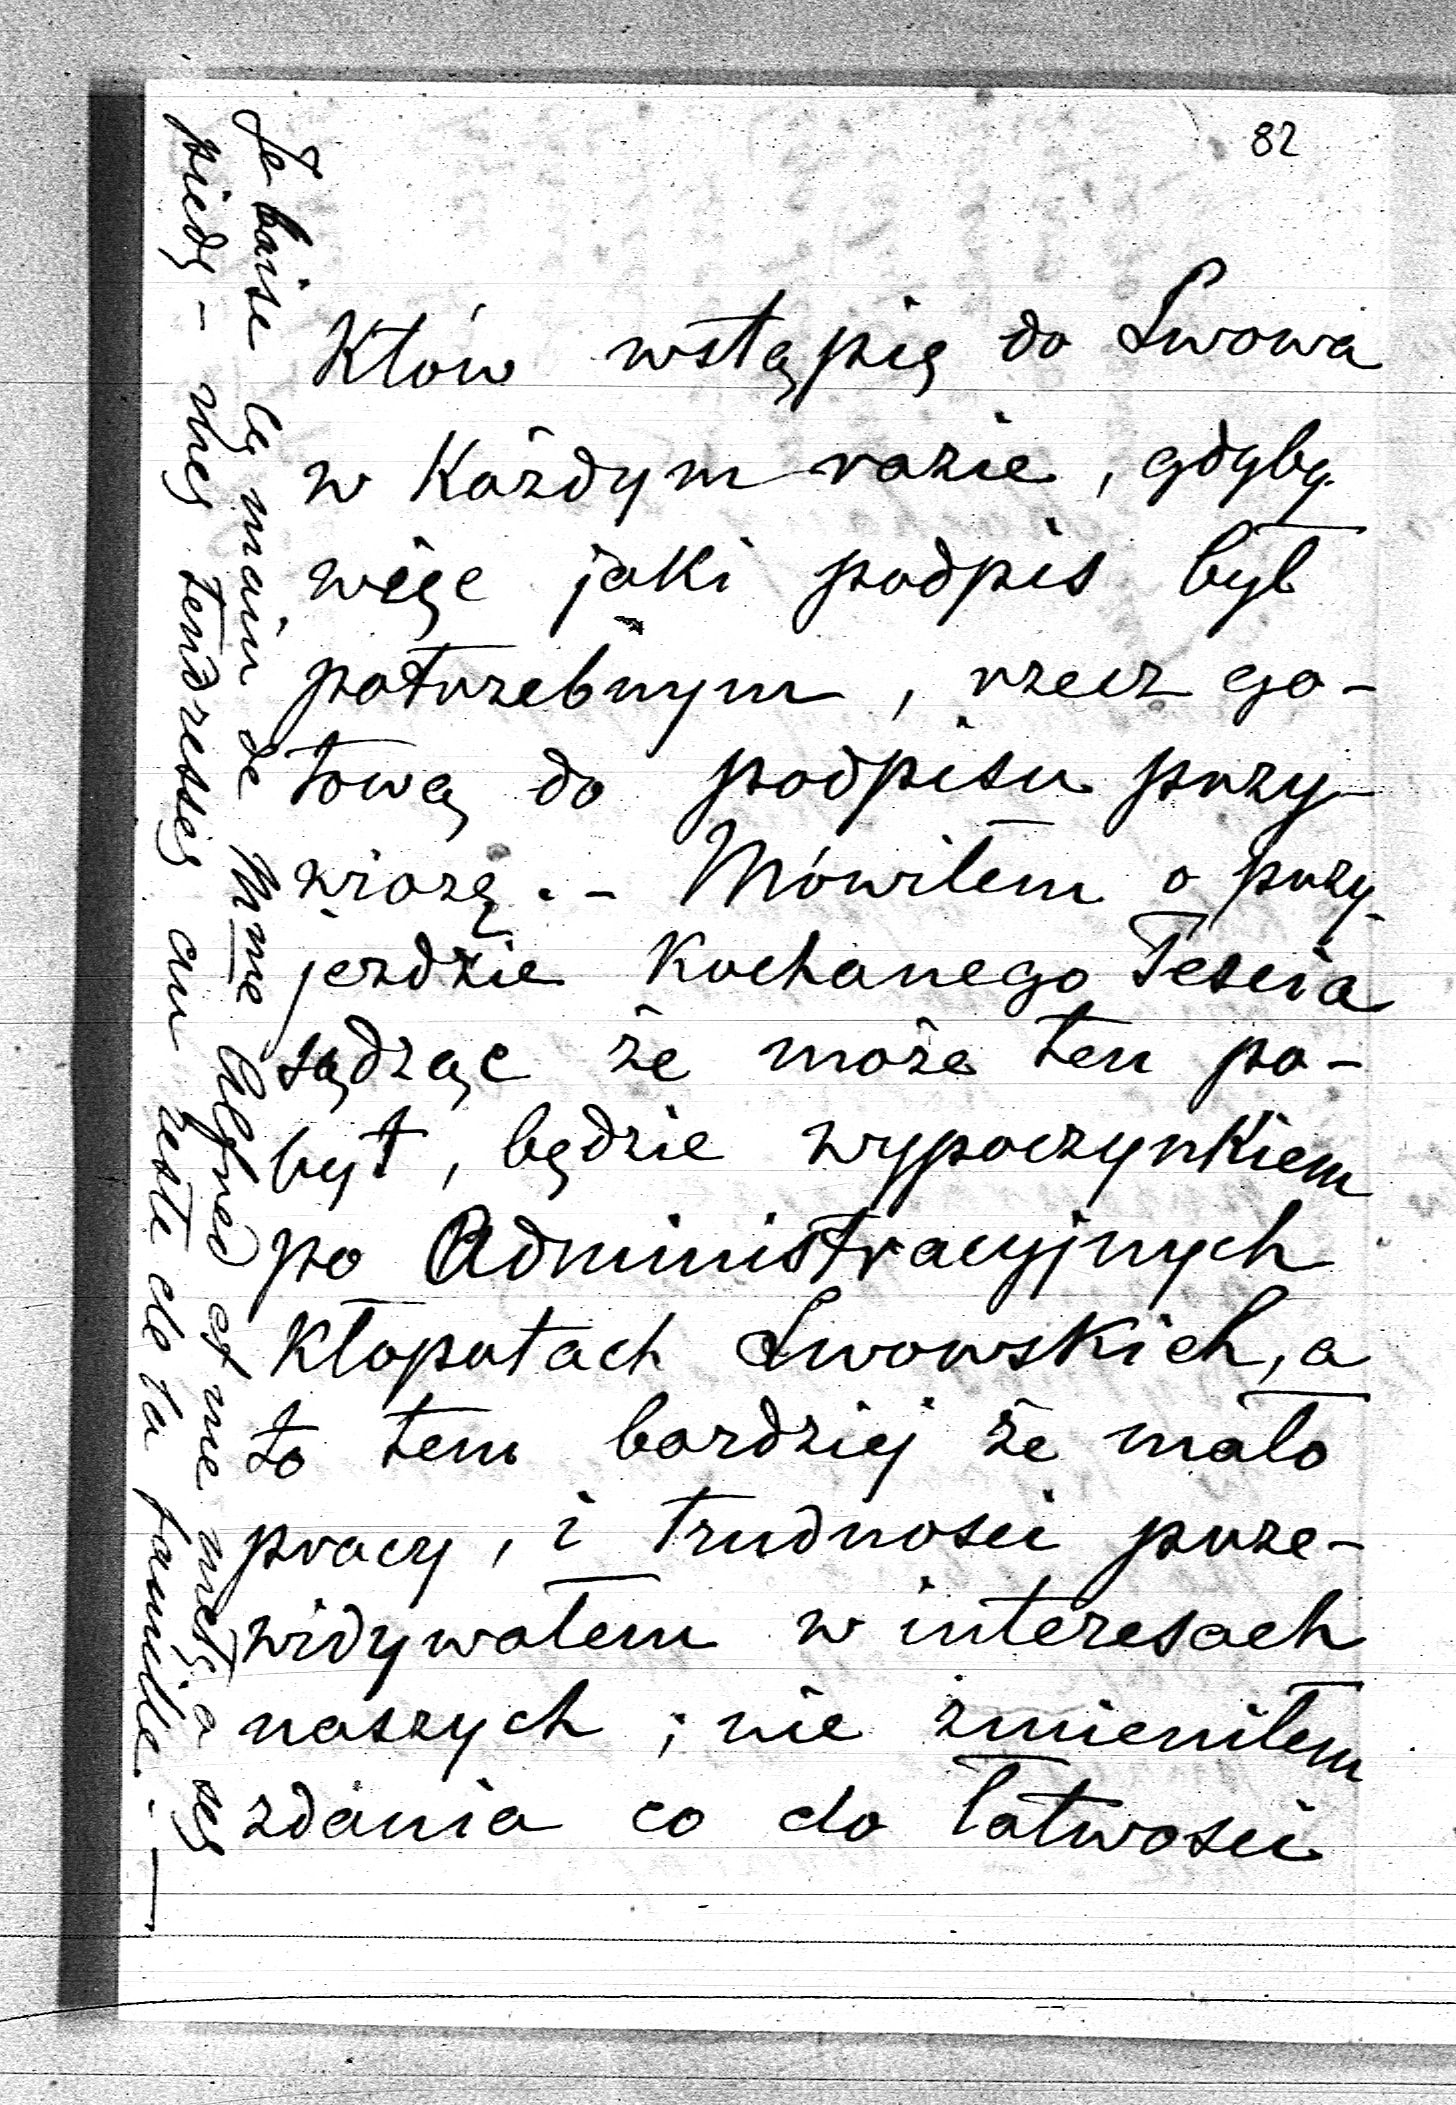 82
Któw wstąpię do Lwowa
w Każdym razie, gdyby
więc jaki podpis był
potrzebnym, rzecz go-
tową do podpisu przy-
wiozę. - Mówiłem o przy-
jezdzie Kochanego Teścia
sądząc że może ten po-
byt, będzie wypoczynkiem
po Administracyjnych
Kłopotach Lwowskich, a
to tem bardziej że mało
pracy, i trudności prze-
widywałem w interesach
naszych; nie zmieniłem
zdania co do łatwości
Je baise les mains de Mme Alfred et me mets a ses
pieds - mes tendresses au reste de ta famille. -